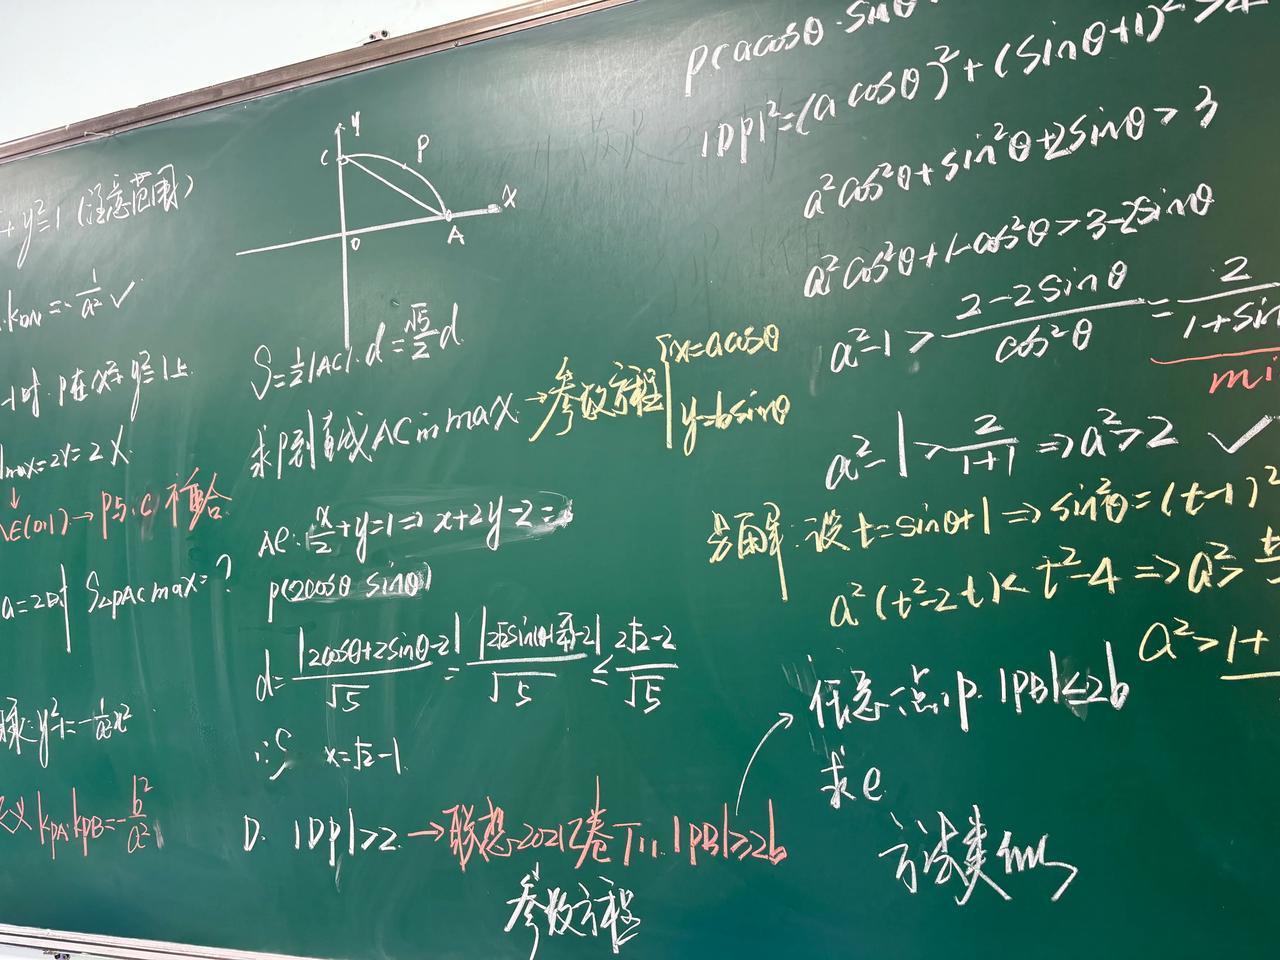 + y²=1 (注意范围)
·k_DN = -1/a² ✓
-1时 P在x²+y²=1上
max=2r=2 X
↓
E(0,1) → P与C不重合
a=2时 S△PAC max=?
y²-1=-1/a² x²
k_PA·k_PB=-b²/a²
y
C
P
x
O
A
S=1/2|AC|·d=√5/2 d
求P到直线AC的max → 参数方程 {x=acosθ
y=bsinθ
AC: x/2+y=1 => x+2y-2=0
P(2cosθ sinθ)
d=|2cosθ+2sinθ-2|/√5=|2√2sin(θ+π/4)-2|/√5≤(2√2-2)/√5
∴S max=√2-1
D. |DP|>2 → 联想 2021乙卷 T11 |PB|≥2b
参数方程
P(acosθ·sinθ
|DP|²=(acosθ)²+(sinθ+1)²>4
a²cos²θ+sin²θ+2sinθ>3
a²cos²θ+1-cos²θ>3-2sinθ
a²-1>(2-2sinθ)/cos²θ=2/(1+sin
mi
a²-1>2/(1+1) => a²>2 ✓
另解: 设t=sinθ+1 => sin²θ=(t-1)²
a²(t²-2t)<t²-4 => a²>
a²>1+
任意一点P |PB|≤2b
求e
方法类似